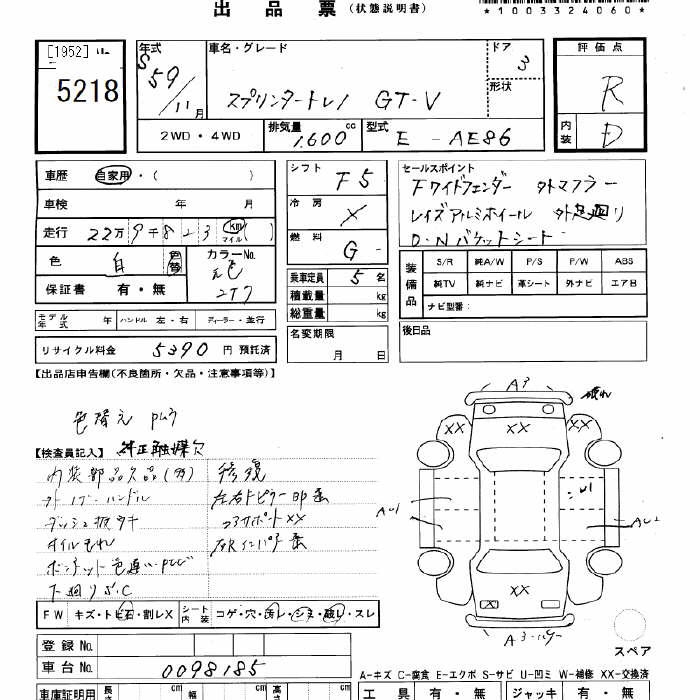 出品票(状態説明書)
*1003324060*
[1952]
5218
年式 S59/11月
車名・グレード スプリンタートレノ GT-V
ドア 3
形状
評価点 R
内装 D
2WD・4WD
排気量 1,600 cc
型式 E-AE86
車歴 自家用・( )
車検 年 月
走行 22万9千823 km マイル ( )
色 白 色替
カラーNo. 元色 2T7
保証書 有・無
シフト F5
冷房 ×
燃料 G-
乗車定員 5 名
積載量 kg
総重量 kg
セールスポイント
Fワイドフェンダー 外マフラー
レイズアルミホイール 外足廻り
D・Nバケットシート
装備品
S/R 純A/W P/S P/W ABS
純TV 純ナビ 革シート 外ナビ エアB
ナビ型番:
モデル年式 年 ハンドル 左・右 ディーラー・並行
リサイクル料金 5390 円 預託済
名変期限 月 日
後日品
【出品店申告欄(不良箇所・欠品・注意事項等)】
色替え
【検査員記入】 純正触媒欠
内装部品欠品(多) 修復
外 ハンドル 左右 ピラー
ダッシュ コアサポートXX
オイルもれ
ボンネット色違い
下廻りS.C
FW キズ・トビ石・割レX
シート内装 コゲ・穴・汚レ・シミ・破レ・スレ
登録No.
車台No. 0098185
車庫証明用 長さ cm 幅 cm 高さ cm
A3
XX
XX
XX
U1
AU1
AU2
XX
スペア
A-キズ C-腐食 E-エクボ S-サビ U-凹ミ W-補修 XX-交換済
工具 有・無 ジャッキ 有・無